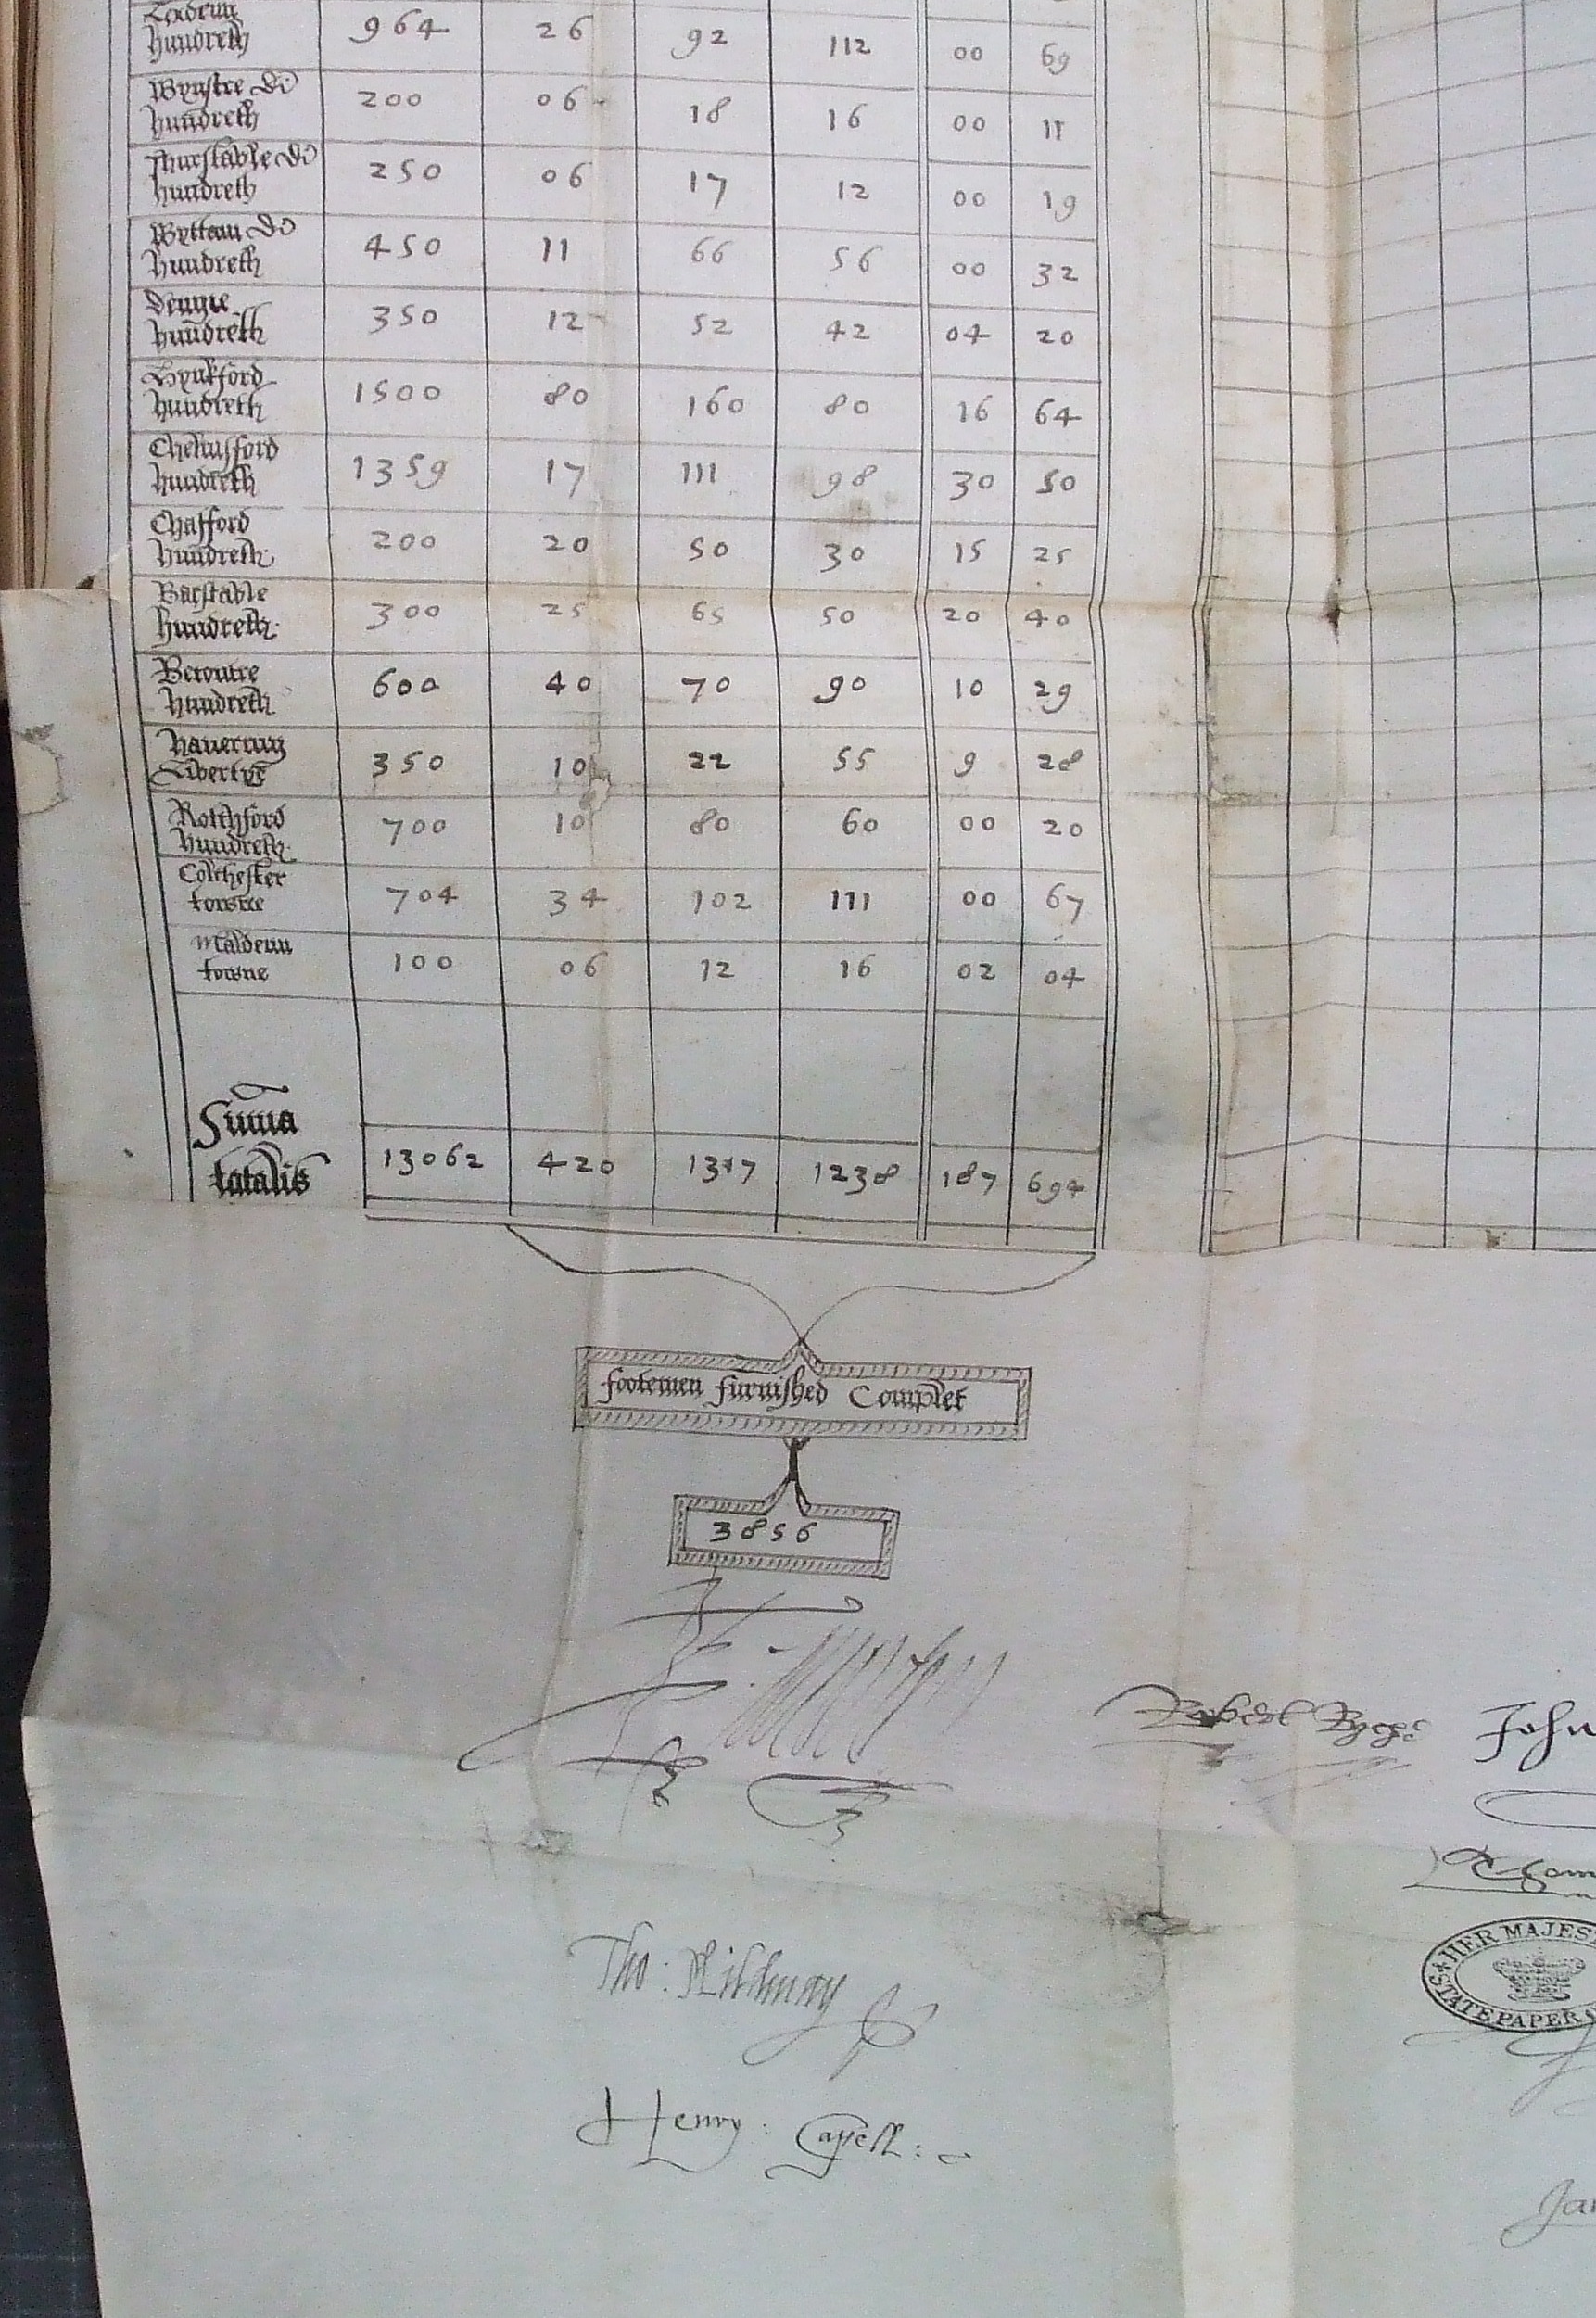 Lexden
hundreth 964 26 92 112 00 69
Wynstre di
hundreth 200 06 18 16 00 11
Thurstable di
hundreth 250 06 17 12 00 19
Wyttam di
hundreth 450 11 66 56 00 32
Dengie
hundreth 350 12 52 42 04 20
Hynkford
hundreth 1500 80 160 80 16 64
Chelmsford
hundreth 1359 17 111 98 30 50
Chafford
hundreth 200 20 50 30 15 25
Barstable
hundreth 300 25 65 50 20 40
Becontre
hundreth 600 40 70 90 10 29
Haveringe
Libertye 350 10 22 55 9 28
Rotchford
hundreth 700 10 80 60 00 20
Colchester
towne 704 34 102 111 00 67
Maldenn
towne 100 06 12 16 02 04
Summa
totalis 13062 420 1317 1238 187 694
footemen furnished Complet
3856
Robert John
Thom
Tho: Mildmay
HER MAJES
STATE PAPER
Henry: Capell:
Jam